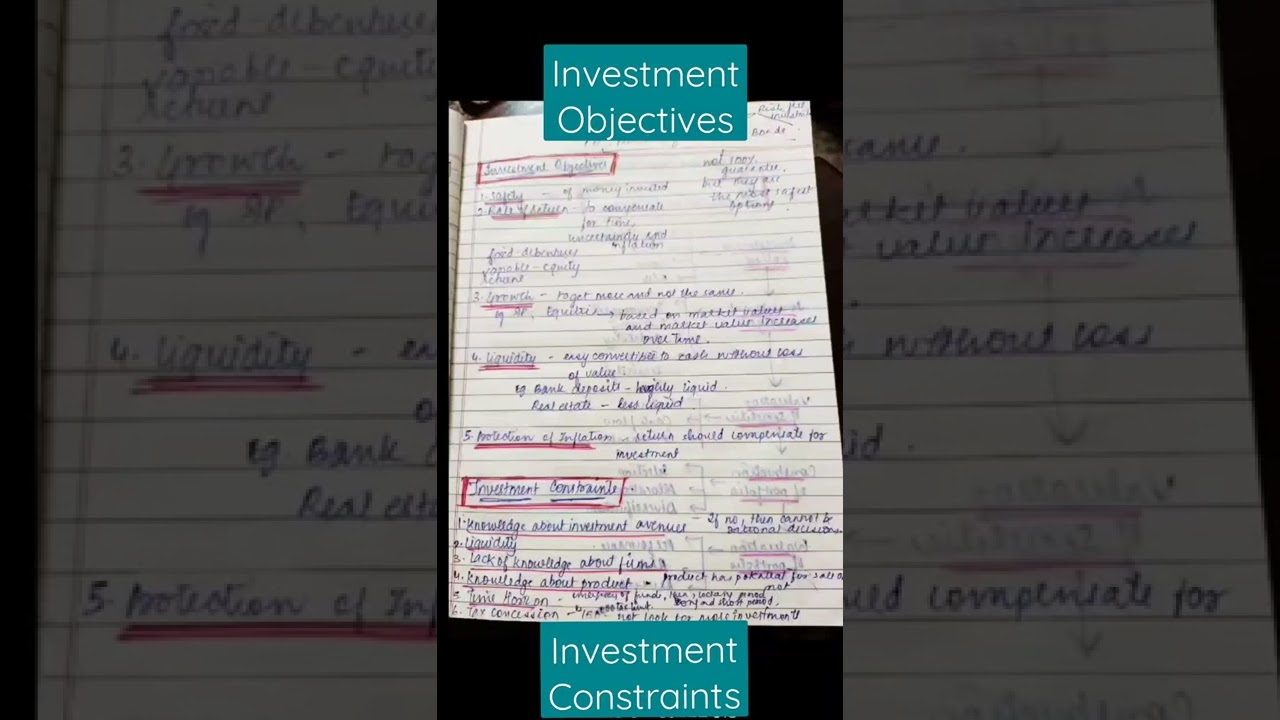 Investment
Objectives
Bonds
Investment Objectives
not 100%
guarantee
but they are
the safest
options
1. Safety - of money invested
2. Rate of return - to compensate
for time,
uncertainty and
inflation
fixed-debentures
variable-equity
3. Growth - to get more and not the same.
eg Equities → based on market values
and market value increases
over time.
4. Liquidity - easy convertible to cash without loss
of value
eg Bank deposits - highly liquid.
Real estate - less liquid.
5. Protection of Inflation - return should compensate for
investment
Investment Constraints
1. Knowledge about investment avenues - If no, then cannot be
rational decisions
2. Liquidity
3. Lack of knowledge about
4. Knowledge about product - product has potential for sale or
not
5. Time Horizon -
and short period,
6. Tax concession - not look for more investments
Investment
Constraints